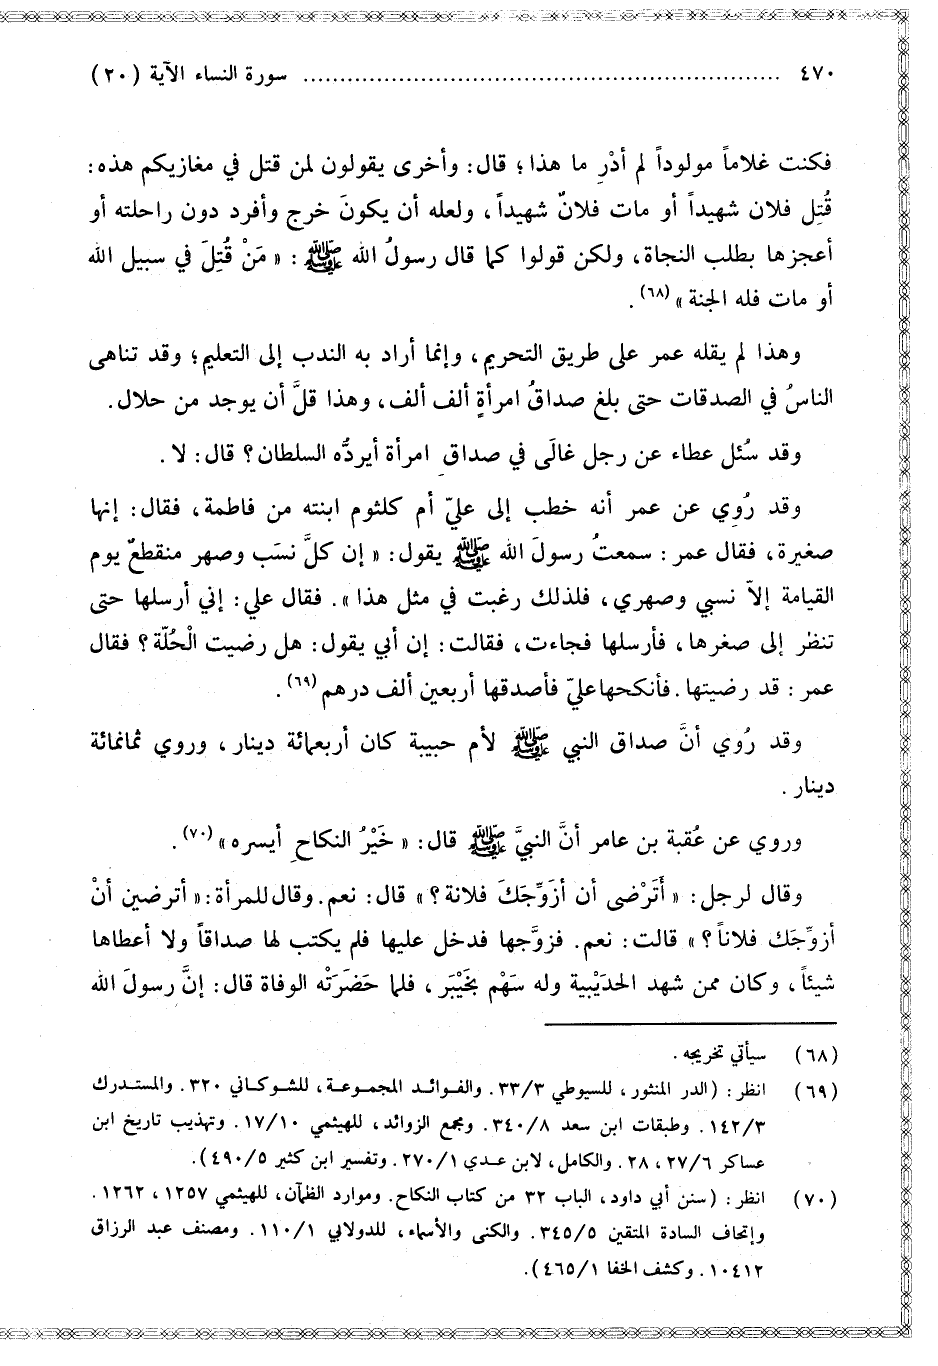 ٤٧٠ ................................................................ سورة النساء الآية (٢٠)
فكنت غلاماً مولوداً لم أدْرِ ما هذا؛ قال: وأخرى يقولون لمن قتل في مغازيكم هذه:
قُتِل فلان شهيداً أو مات فلانٌ شهيداً، ولعله أن يكونَ خرج وأفرد دون راحلته أو
أعجزها بطلب النجاة، ولكن قولوا كما قال رسولُ الله ﷺ: « مَنْ قُتِلَ في سبيل الله
أو مات فله الجنة »(٦٨).
وهذا لم يقله عمر على طريق التحريم، وإنما أراد به الندب إلى التعليم؛ وقد تناهى
الناسُ في الصدقات حتى بلغ صداقُ امرأةٍ ألف ألف، وهذا قلَّ أن يوجد من حلال.
وقد سُئل عطاء عن رجل غالَى في صداقِ امرأة أيردُّه السلطان؟ قال: لا.
وقد رُوِي عن عمر أنه خطب إلى عليّ أم كلثوم ابنته من فاطمة، فقال: إنها
صغيرة، فقال عمر: سمعتُ رسولَ الله ﷺ يقول: « إن كلَّ نسَب وصهر منقطعٌ يوم
القيامة إلاّ نسبي وصهري، فلذلك رغبت في مثل هذا ». فقال علي: إني أرسلها حتى
تنظر إلى صغرها، فأرسلها فجاءت، فقالت: إن أبي يقول: هل رضيت الْحُلّة؟ فقال
عمر: قد رضيتها. فأنكحها عليّ فأصدقها أربعين ألف درهم(٦٩).
وقد رُوي أنَّ صداق النبي ﷺ لأم حبيبة كان أربعمائة دينار، وروي ثمانمائة
دينار.
وروي عن عُقبة بن عامر أنَّ النبيَّ ﷺ قال: « خَيْرُ النكاحِ أيسره »(٧٠).
وقال لرجل: « أَتَرْضى أن أزَوِّجَكَ فلانة؟ » قال: نعم. وقال للمرأة: « أترضين أنْ
أزوِّجَك فلاناً؟ » قالت: نعم. فزوَّجها فدخل عليها فلم يكتب لها صداقاً ولا أعطاها
شيئاً، وكان ممن شهد الحدَيْبية وله سَهْم بخَيْبَر، فلما حَضَرَتْه الوفاة قال: إنَّ رسولَ الله
(٦٨) سيأتي تخريجه.
(٦٩) انظر: (الدر المنثور، للسيوطي ٣٣/٣. والفوائد المجموعة، للشوكاني ٣٢٠. والمستدرك
١٤٢/٣. وطبقات ابن سعد ٣٤٠/٨. ومجمع الزوائد، للهيثمي ١٧/١٠. وتهذيب تاريخ ابن
عساكر ٢٧/٦، ٢٨. والكامل، لابن عدي ٢٧٠/١. وتفسير ابن كثير ٤٩٠/٥).
(٧٠) انظر: (سنن أبي داود، الباب ٣٢ من كتاب النكاح. وموارد الظمآن، للهيثمي ١٢٥٧، ١٢٦٢.
وإتحاف السادة المتقين ٣٤٥/٥. والكنى والأسماء، للدولابي ١١٠/١. ومصنف عبد الرزاق
١٠٤١٢. وكشف الخفا ٤٦٥/١).